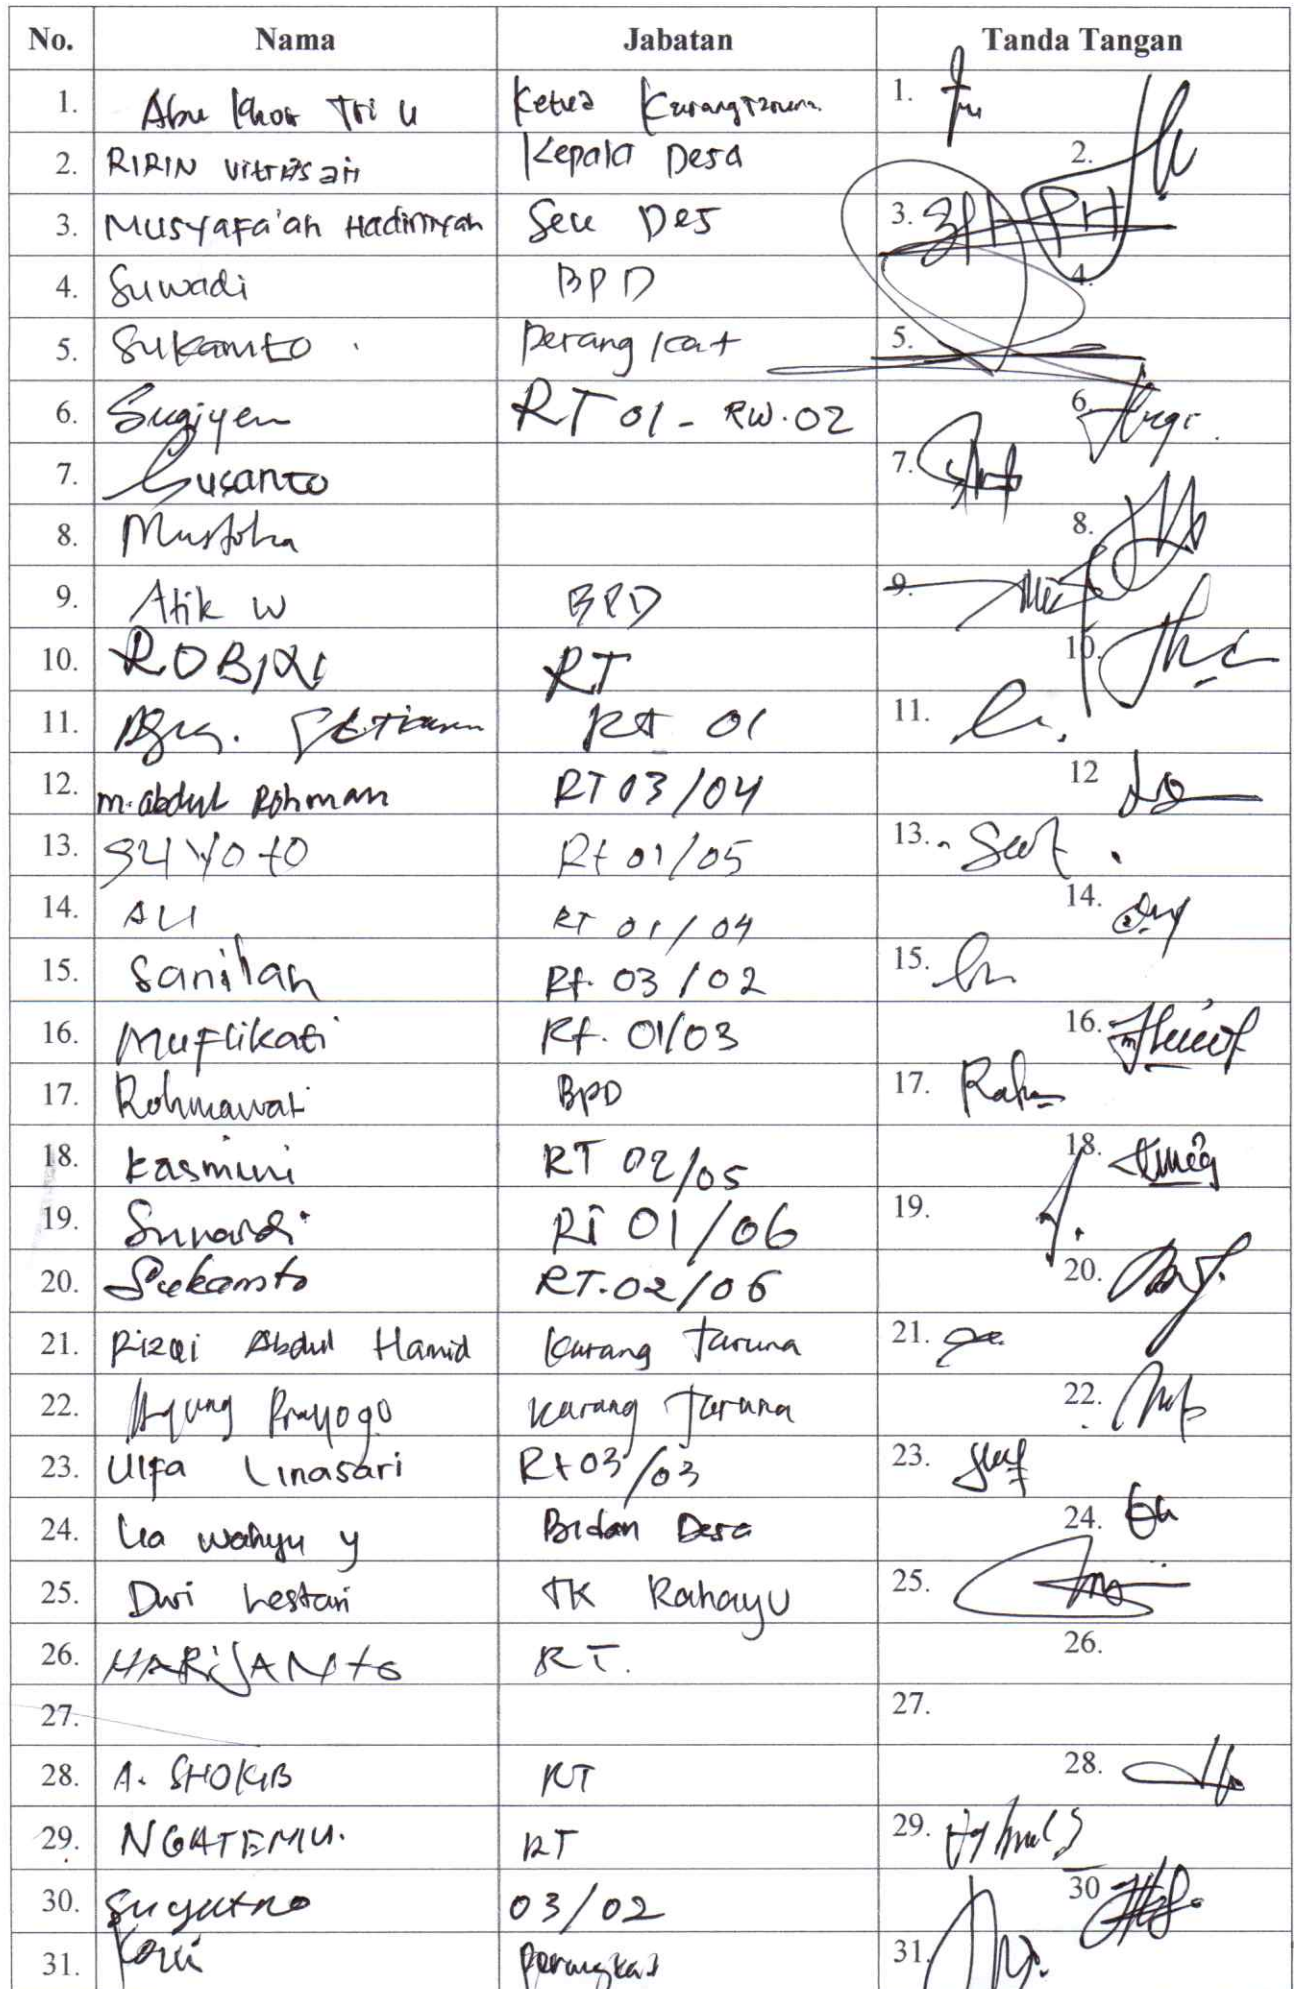 No. Nama Jabatan Tanda Tangan
1. Abu Khoir Tri U Ketua Karangtaruna 1.
2. RIRIN Vitriasari Kepala Desa 2.
3. Musyafa'ah Hadiniyah Sek Des 3.
4. Suwadi BPD 4.
5. Sukamto Perangkat 5.
6. Sugiyem RT 01 - RW.02 6.
7. Susanto 7.
8. Mustofa 8.
9. Atik W BPD 9.
10. RT 10.
11. Agus. Setiawan Rt 01 11.
12. M. abdul Rohman RT 03/04 12
13. SUYOtO Rt 01/05 13.
14. ALI RT 01/04 14.
15. Sanilah Rt. 03/02 15.
16. Muflikati Rt. 01/03 16.
17. Rohmawati BPD 17.
18. Kasmini RT 02/05 18.
19. Sunardi RT 01/06 19.
20. Sukamto RT.02/06 20.
21. Rizqi Abdul Hamid Karang Taruna 21.
22. Agung Prayogo Karang Taruna 22.
23. Ulfa Linasari Rt 03/03 23.
24. Lia Wahyu y Bidan Desa 24.
25. Dwi Lestari TK Rahayu 25.
26. HARIJANtO RT. 26.
27. 27.
28. A. SHOKIB RT 28.
29. NGATEMU. RT 29.
30. Suyatno 03/02 30
31. Perangkat 31.